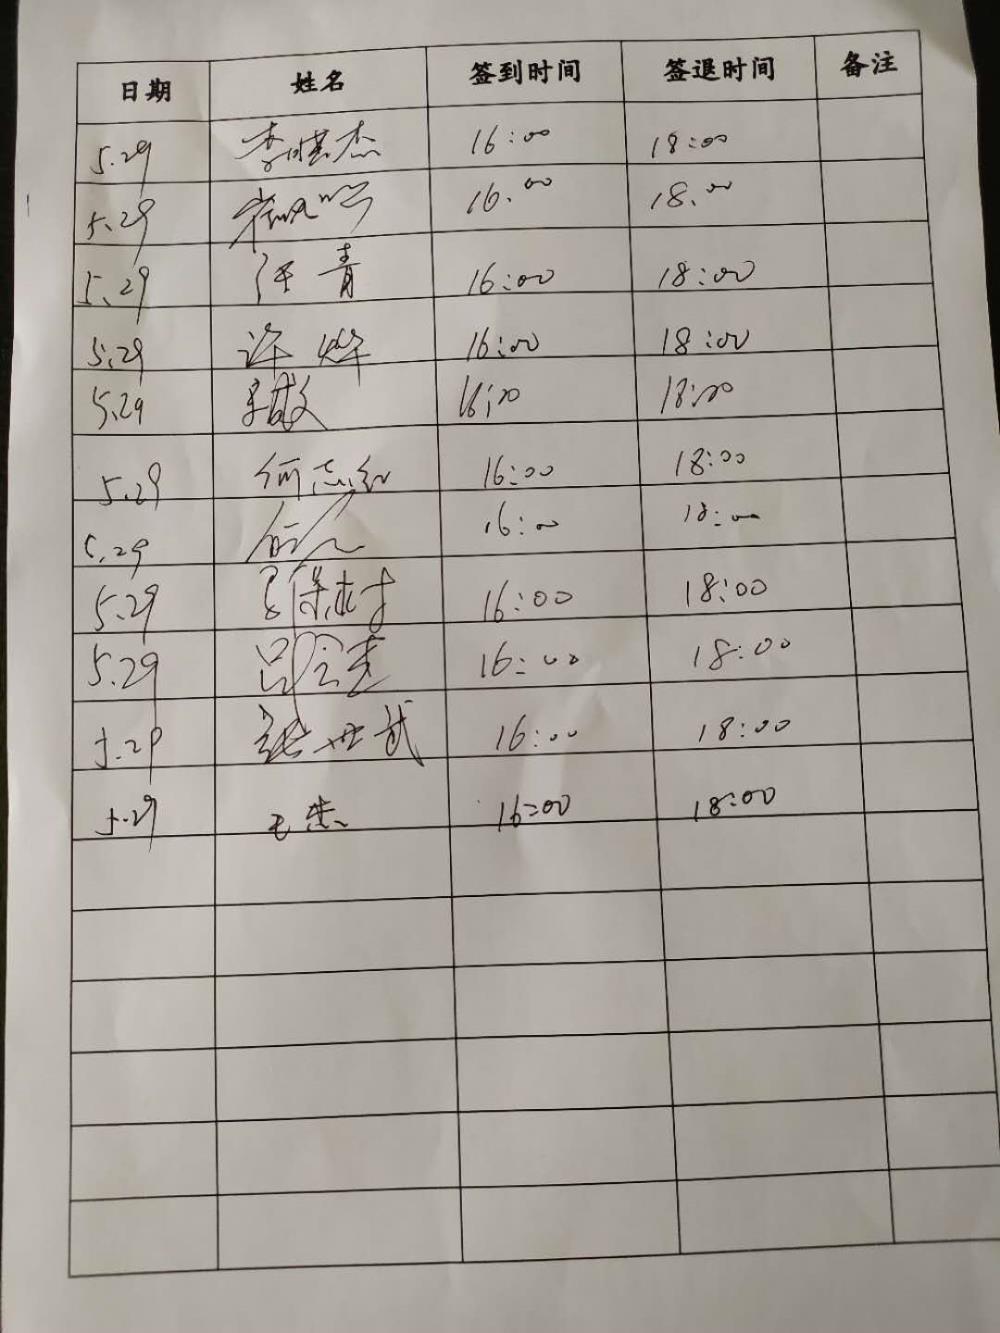 日期 姓名 签到时间 签退时间 备注
5.29 李晓杰 16:00 18:00
5.29 16.00 18.00
5.29 汪青 16:00 18:00
5.29 许烨 16:00 18:00
5.29 16:00 18:00
5.29 何志红 16:00 18:00
5.29 16:00 18:00
5.29 16:00 18:00
5.29 16:00 18:00
5.29 张世武 16:00 18:00
5.29 王杰 16:00 18:00